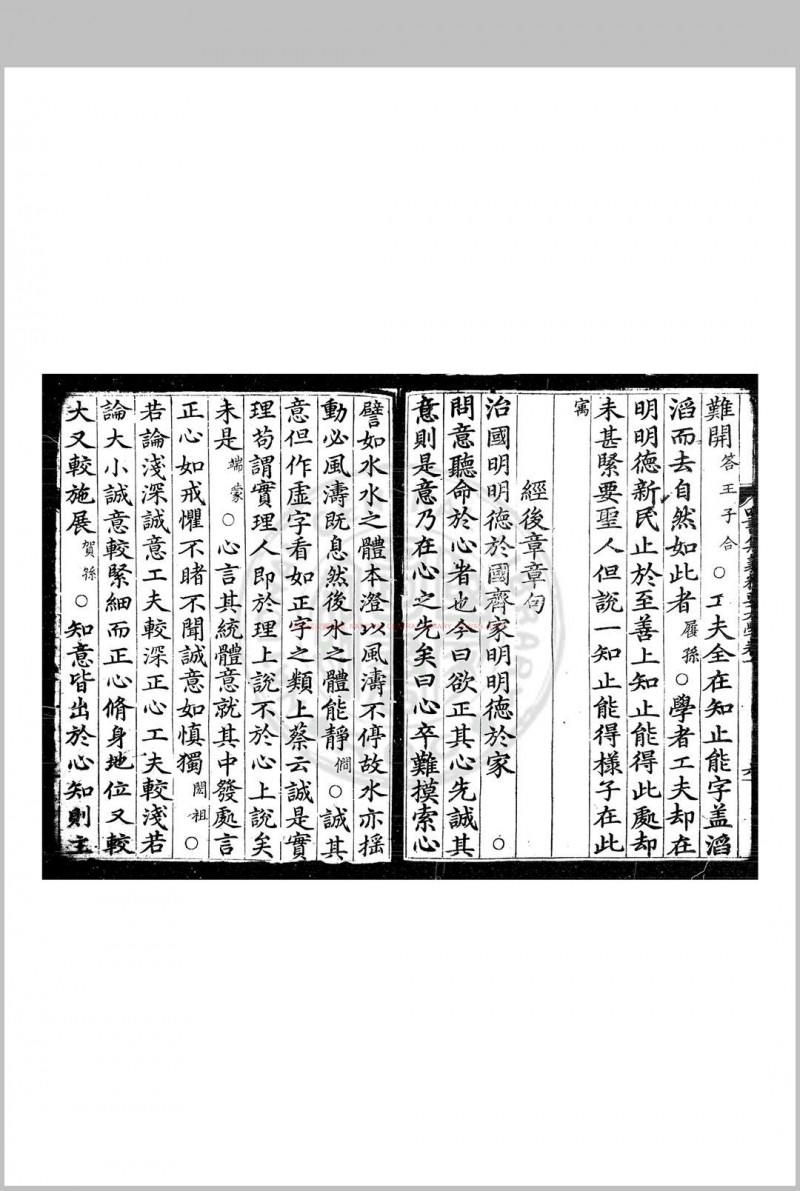 難開答王子合○工夫全在知止能字盖滔
滔而去自然如此者履孫○學者工夫却在
明明德新民止於至善上知止能得此處却
未甚緊要聖人但説一知止能得樣子在此
㝢
經後章章句
治國明明德於國齊家明明德於家○
問意聽命於心者也今曰欲正其心先誠其
意則是意乃在心之先矣曰心卒難摸索心
譬如水水之體本澄以風濤不停故水亦揺
動必風濤既息然後水之體能静僩○誠其
意但作虚字看如正字之類上蔡云誠是實
理苟謂實理人即於理上説不於心上説矣
未是端蒙○心言其統體意就其中發處言
正心如戒懼不睹不聞誠意如慎獨閎祖○
若論淺深誠意工夫較深正心工夫較淺若
論大小誠意較緊細而正心脩身地位又較
大又較施展賀孫○知意皆出於心知則主